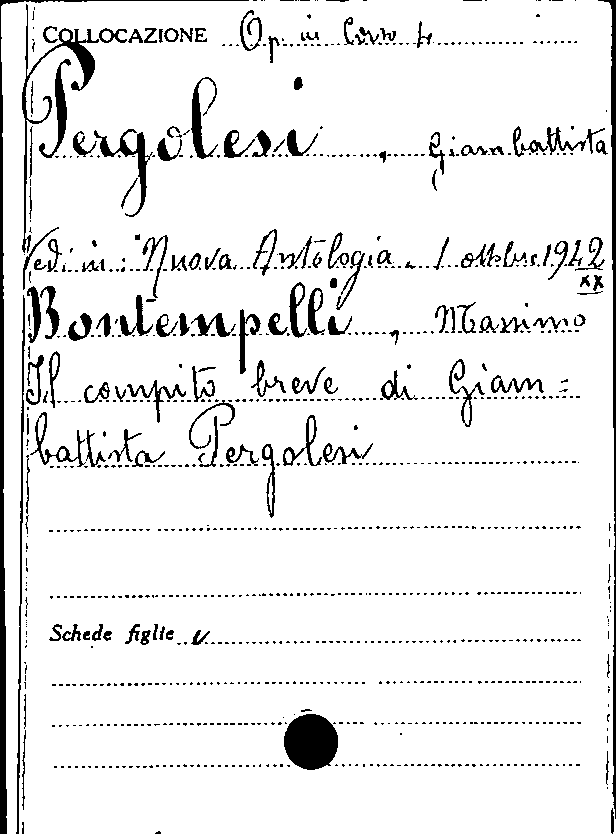 COLLOCAZIONE Op. in Corso 4
Pergolesi, Giambattista
Vedi in: "Nuova Antologia. 1 ottobre 1942
XX
Bontempelli, Massimo
Il compito breve di Giam=
battista Pergolesi
Schede figlie